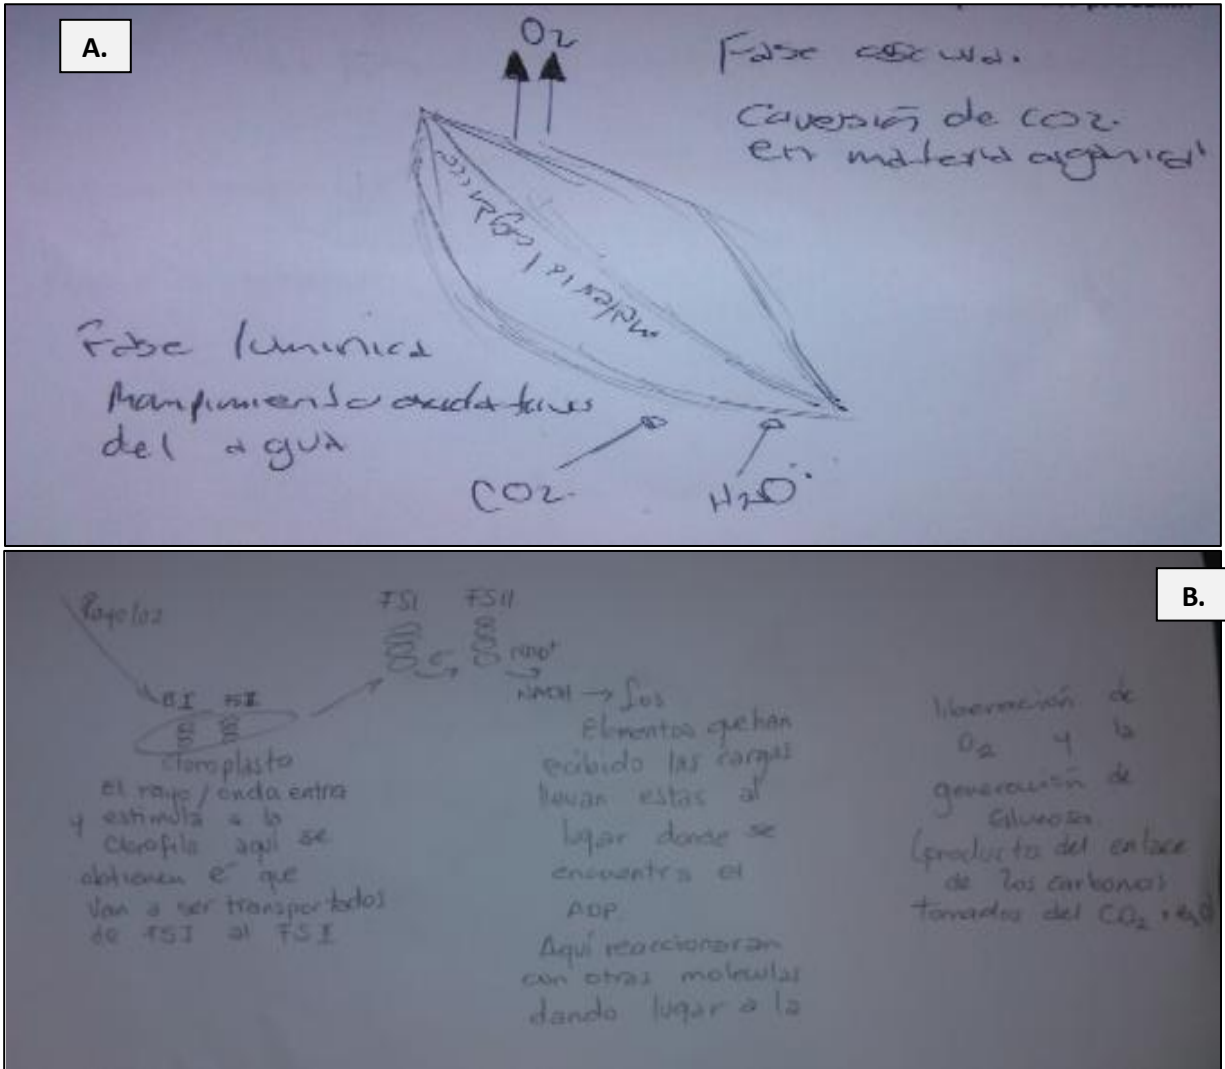 A.
O2
Fase oscura.
Conversión de CO2.
en materia orgánica
materia orgánica
Fase lumínica
del agua
CO2.
H2O
B.
Rayo luz
FSI FSII
e-
NADH → Los
FSI FSII
Cloroplasto
El rayo/onda entra
y estimula a la
Clorofila aquí se
obtienen e- que
van a ser transportados
de FSI al FSI
Elementos que han
ecibido las cargas
llevan estas al
lugar donde se
encuentra el
ADP.
Aquí reaccionaran
con otras moleculas
dando lugar a la
liberación de
O2 y la
generación de
Glucosa
(producto del enlace
de los carbonos
tomados del CO2